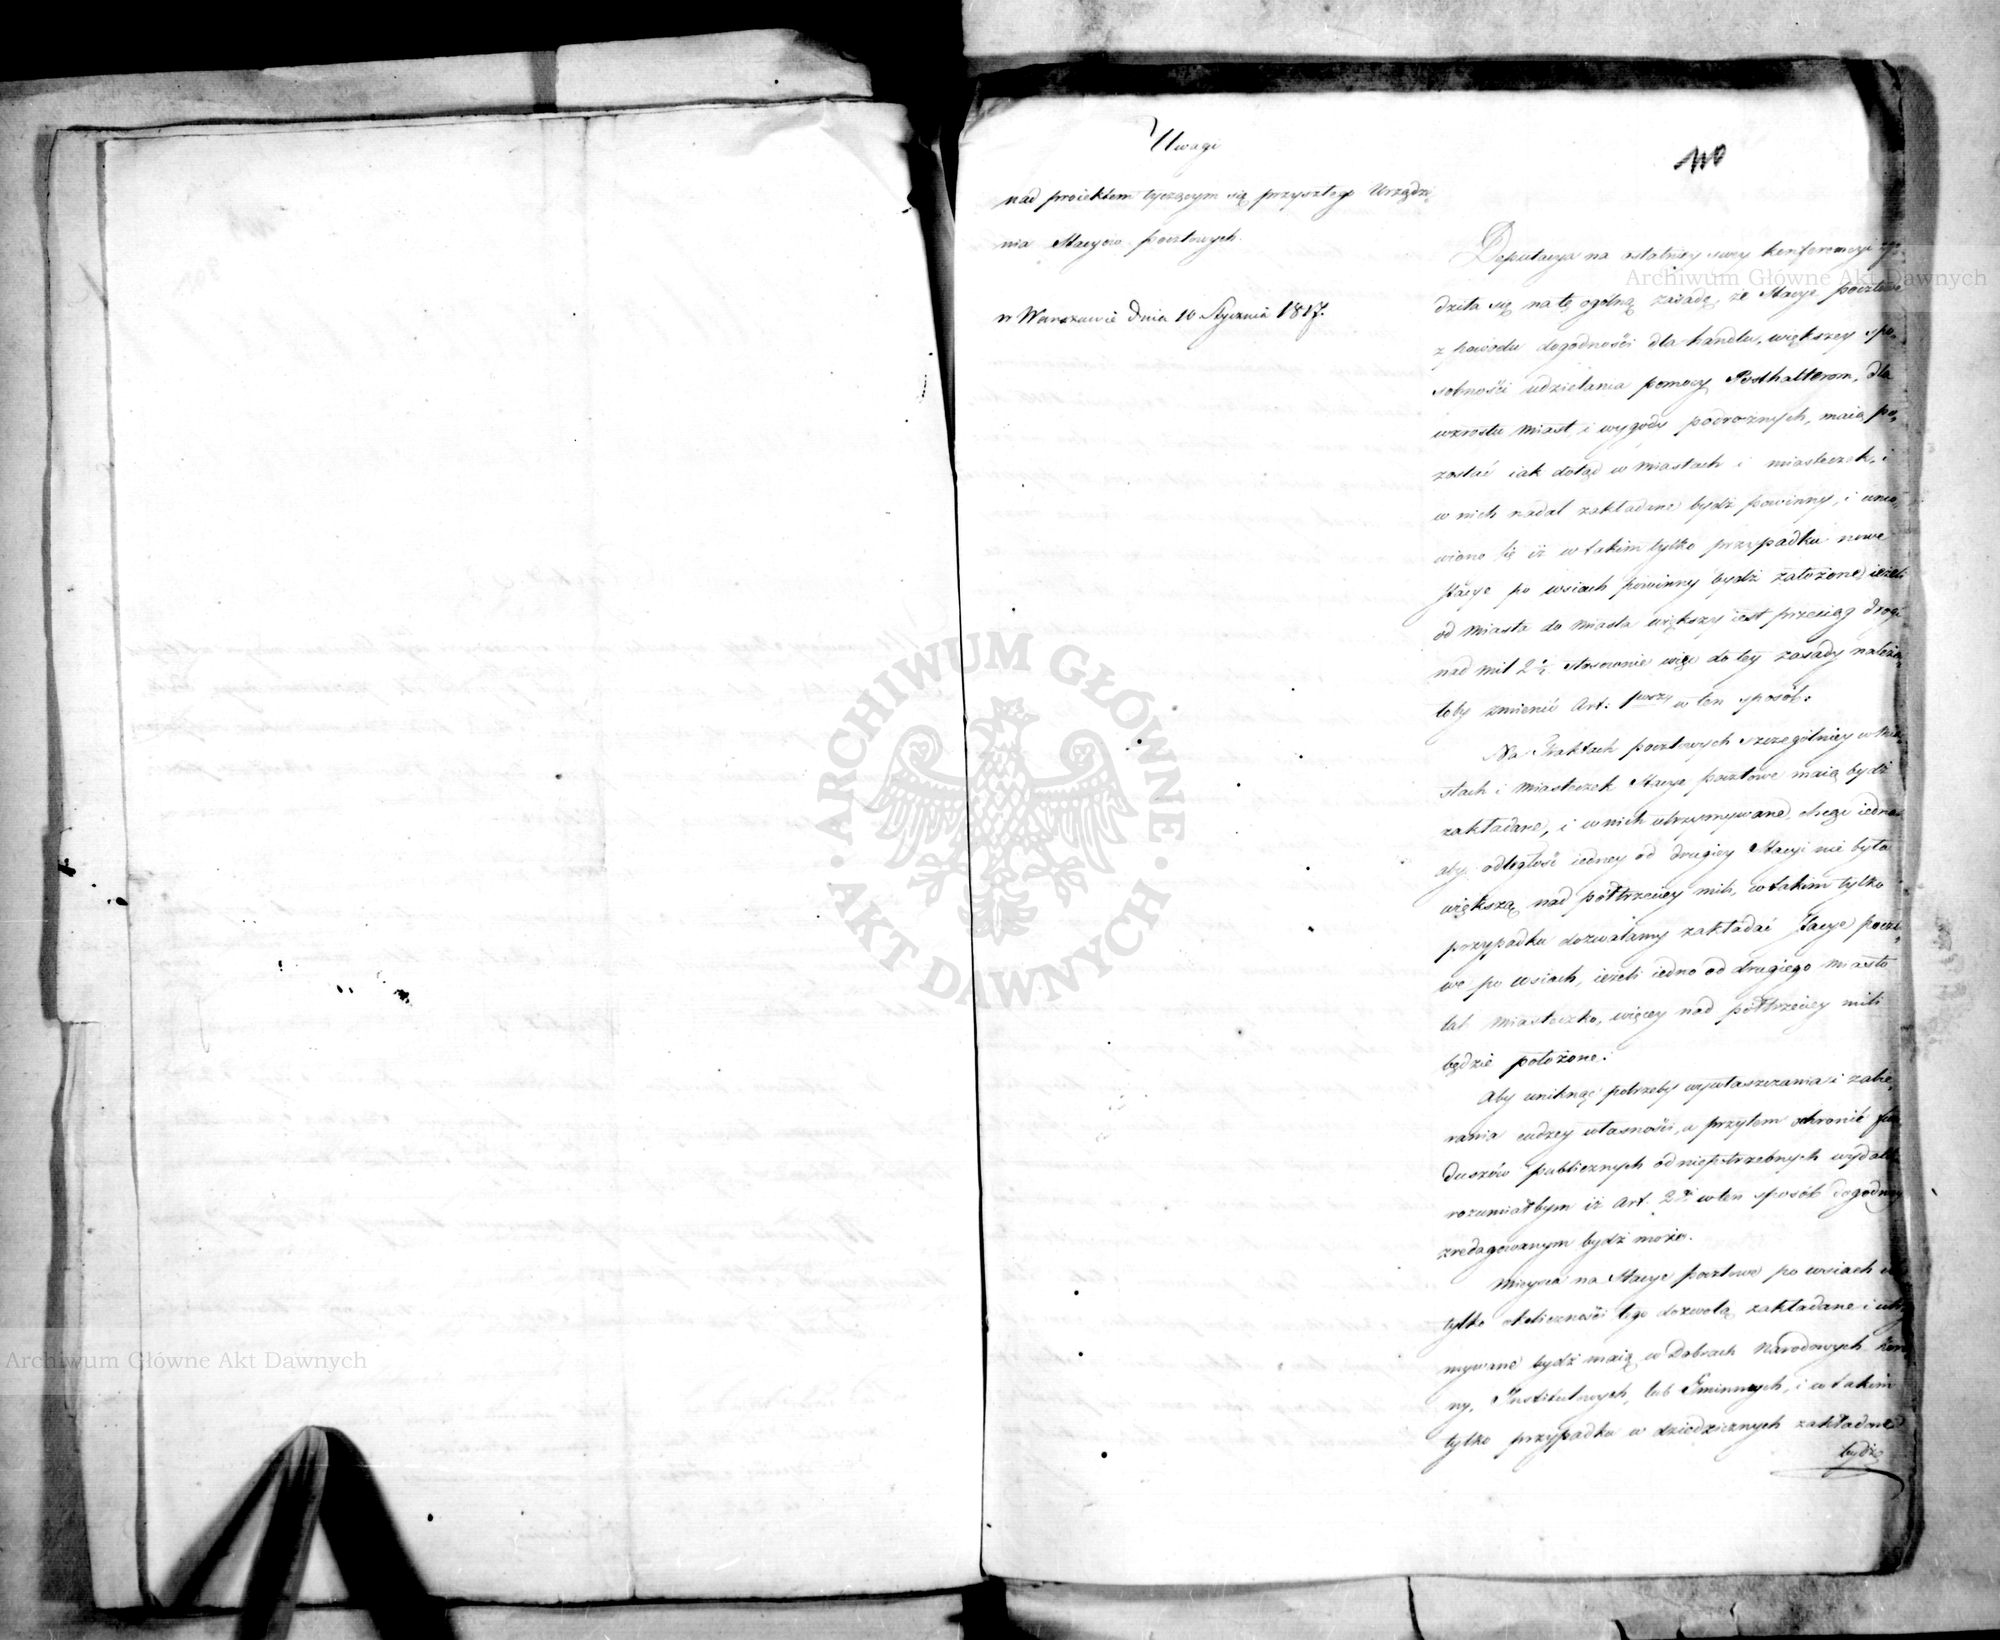 110
Uwagi
nad proiektem tyczącym się przyszłego Urządze,
nia Stacyow pocztowych.
w Warszawie dnia 10 Stycznia 1817.
Deputacya na ostatniey swey konferencyi zgo,
dziła się na tę ogólną zasadę, że Stacye pocztowe
z powodu dogodności dla handlu, większey spo,
sobności udzielania pomocy Posthalterom, dla
wzrostu miast i wygody podróżnych, maią po,
zostać iak dotąd w miastach i miasteczek, i
w nich nadal zakładane bydź powinny, i umó,
wiono się iż w takim tylko przypadku nowe
Stacye po wsiach powinny bydź założone, ieżeli
od miasta do miasta większy iest przeciąg drogi
nad mil 2 1/2. Stosownie więc do tey zasady należa,
łoby zmienić Art: 1wszy w ten sposób:
Na Traktach pocztowych szczególniey w Mia,
stach i Miasteczek Stacye pocztowe maią bydź
zakładane, i w nich utrzymywane,
aby odległość iedney od drugiey Stacyi nie była
większą nad półtrzeciey mili, w takim tylko
przypadku dozwalamy zakładać Stacye poczto,
we po wsiach, ieżeli iedno od drugiego miasto
lub miasteczko, więcey nad półtrzeciey mili
będzie położone.
Aby uniknąć potrzeby wywłaszczania i zabie,
rania cudzey własności, a przytem ochronić fun,
duszów publicznych od niepotrzebnych wydatk
rozumiałbym iż Art. 2gi w ten sposób dogodniey
zredagowanym bydź może.
Mieysca na Stacye pocztowe po wsiach
tylko okoliczności tego dozwolą, zakładane i utrzy
mywane bydź maią w Dobrach Narodowych, Koro
ny, Instytutowych, lub Gminnych, i w takim
tylko przypadku w dziedzicznych zakładane
będzie
Archiwum Główne Akt Dawnych
Archiwum Główne Akt Dawnych
ARCHIWUM GŁÓWNE · AKT DAWNYCH ·